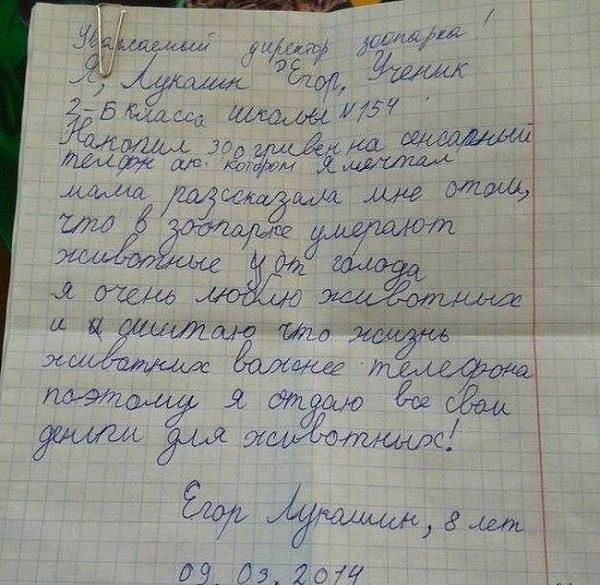 Уважаемый директор зоопарка!
Я, Лукашин Егор, Ученик
2-Б класса школы №154
Накопил 300 гривен на сенсарный
телфон о котором я мечтал
мама разссказала мне отом,
что в зоопарке умерают
животные от голода
я очень люблю животных
и считаю что жизнь
животних важнее телефона
поэтому я отдаю все свои
деньги для животных!
Егор Лукашин, 8 лет
09.03.2014